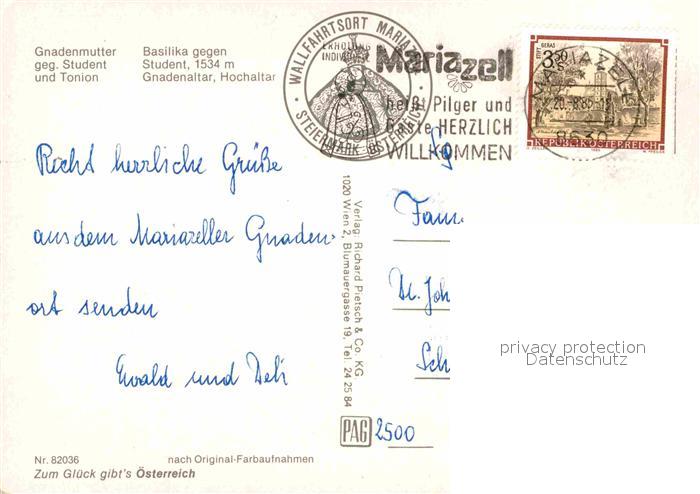 Gnadenmutter
geg. Student
und Tonion
Basilika gegen
Student, 1534 m
Gnadenaltar, Hochaltar
WALLFAHRTSORT MARIAZELL
ERHOLUNG
STEIERMARK ÖSTERREICH
Mariazell
heißt Pilger und
Gäste HERZLICH
WILLKOMMEN
3.50
STIFT GERAS
REPUBLIK ÖSTERREICH
MARIAZELL
20.-8.86-18
8630
Recht herrliche Grüße
aus dem Mariazeller Gnaden-
ort senden
Ewald und
Fam.
Joh
Sch
2500
Verlag: Richard Pietsch & Co. KG.
1020 Wien 2, Blumauergasse 19, Tel. 24 25 84
PAG
privacy protection
Datenschutz
Nr. 82036
nach Original-Farbaufnahmen
Zum Glück gibt's Österreich